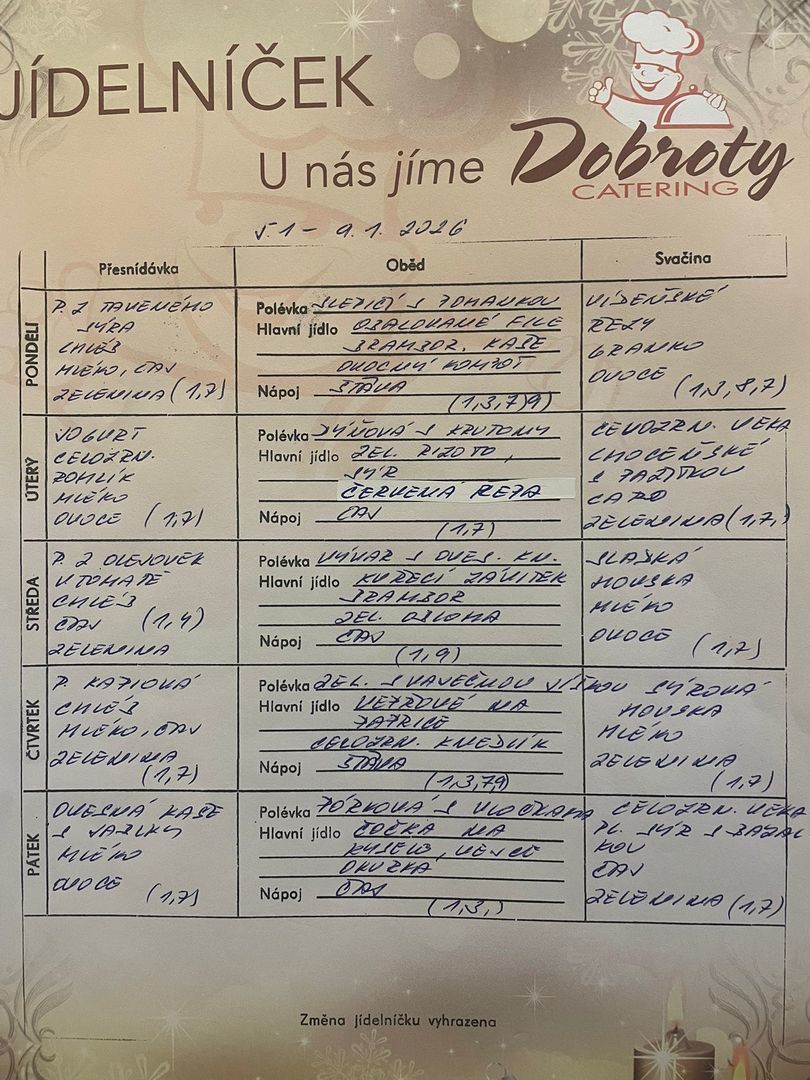 JÍDELNÍČEK
U nás jíme Dobroty
CATERING
5.1 - 9.1. 2026
Přesnídávka Oběd Svačina
PONDĚLÍ
P. Z TAVENÉHO
SÝRA
CHLÉB
MLÉKO, ČAJ
ZELENINA (1,7)
Polévka SLEPIČÍ S POHANKOU
Hlavní jídlo OBALOVANÉ FILE
BRAMBOR. KAŠE
OVOCNÝ KOMPOT
Nápoj ŠŤÁVA
(1,3,7,9)
VÍDEŇSKÉ
ŘEZY
GRANKO
OVOCE (1,3,8,7)
ÚTERÝ
JOGURT
CELOZRN.
ROHLÍK
MLÉKO
OVOCE (1,7)
Polévka DÝŇOVÁ S KRUTONY
Hlavní jídlo ZEL. RIZOTO,
SÝR
ČERVENÁ ŘEPA
Nápoj ČAJ
(1,7)
CELOZRN. VEKA
CHOCEŇSKÉ
S PAŽITKOU
CARO
ZELENINA (1,7,)
STŘEDA
P. Z OLEJOVEK
V TOMATĚ
CHLÉB
ČAJ (1,4)
ZELENINA
Polévka VÝVAR S OVES. KN.
Hlavní jídlo KUŘECÍ ZÁVITEK
BRAMBOR
ZEL. OBLOHA
Nápoj ČAJ
(1,9)
SLADKÁ
HOUSKA
MLÉKO
OVOCE (1,7)
ČTVRTEK
P. KAPIOVÁ
CHLÉB
MLÉKO, ČAJ
ZELENINA
(1,7)
Polévka ZEL. S VAJEČNOU JÍŠKOU
Hlavní jídlo VEPŘOVÉ NA
PAPRICE
CELOZRN. KNEDLÍK
Nápoj ŠŤÁVA
(1,3,7,9)
SÝROVÁ
HOUSKA
MLÉKO
ZELENINA
(1,7)
PÁTEK
OVESNÁ KAŠE
S JABLKY
MLÉKO
OVOCE (1,7)
Polévka PÓRKOVÁ S VLOČKAMI
Hlavní jídlo ČOČKA NA
KYSELO, VEJCE
OKURKA
Nápoj ČAJ
(1,3,)
CELOZRN. VEKA
PL. SÝR S BAZAL
KOU
ČAJ
ZELENINA (1,7)
Změna jídelníčku vyhrazena